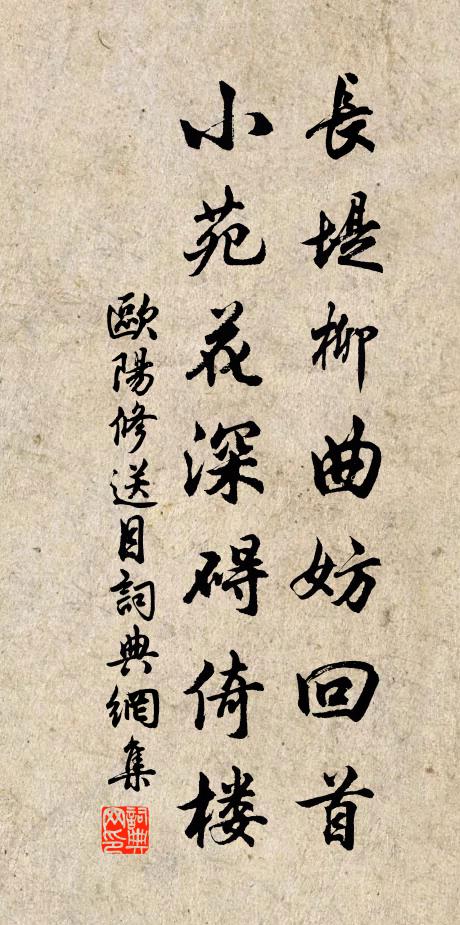 長堤柳曲妨回首
小苑花深礙倚楼
歐陽修送目詞典網集
詞典网印